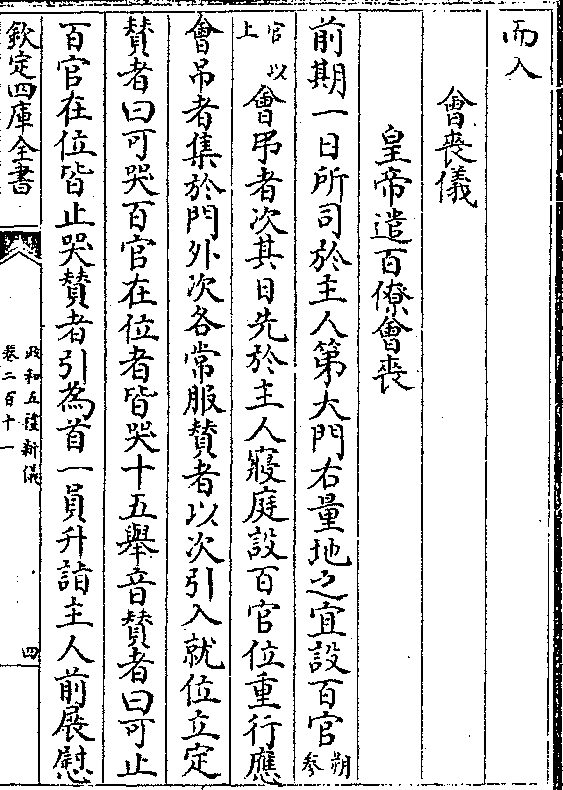 而入
會喪儀
皇帝遣百僚會喪
前期一日所司於主人第大門右量地之宜設百官朔參
官以上會弔者次其日先於主人寢庭設百官位重行應
會吊者集於門外次各常服贊者以次引入就位立定
贊者曰可哭百官在位者皆哭十五舉音贊者曰可止
百官在位皆止哭贊者引為首一員升詣主人前展慰
欽定四庫全書
政和五禮新儀
卷二百十一
四